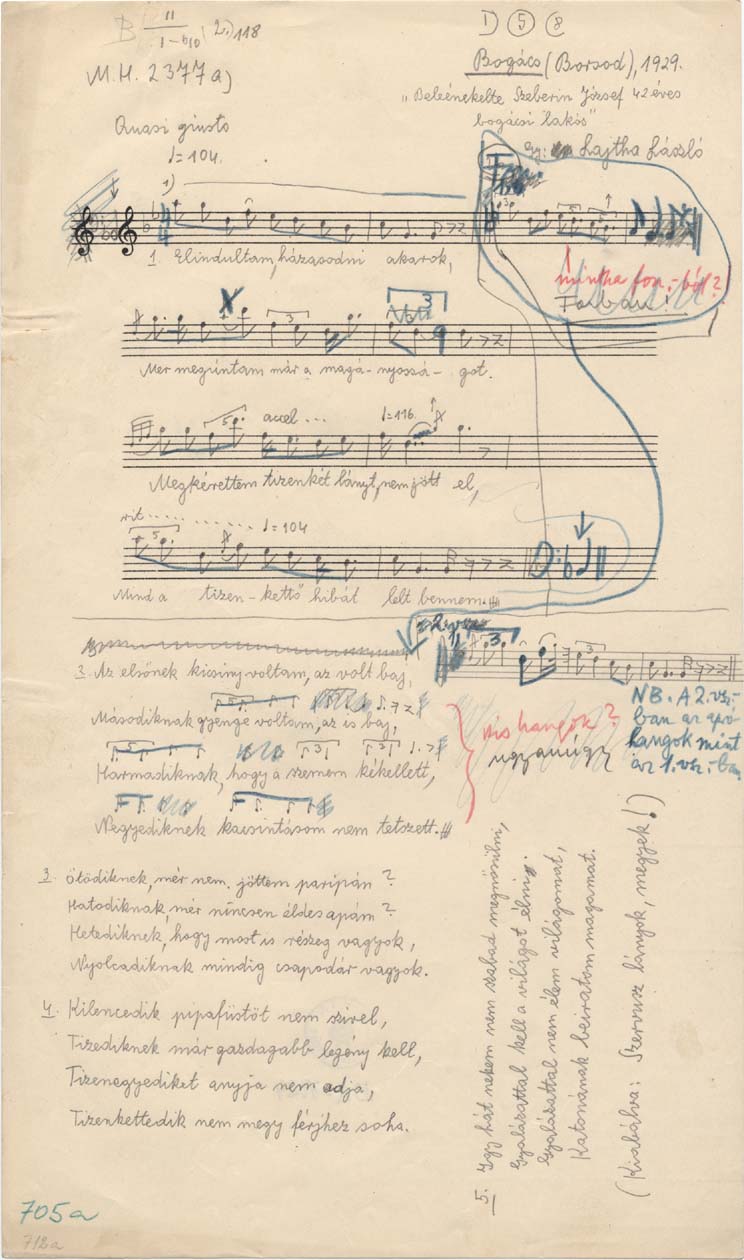 B II 2.) 118
I
M.H. 2377a)
I) 5 8
Bogács (Borsod), 1929.
"Beleénekelte Szeberin József 42 éves
bogácsi lakós"
gy: Lajtha László
Quasi giusto
♩=104.
1)
1. Elindultam, házasodni akarok,
mintha for.-ból?
3
Mer meguntam már a magá-nyossá-got.
5 accel... ♩=116.
Megkérettem tizenkét lányt, nem jött el,
rit......... ♩=104
5
Mind a tizen-kettő hibát lelt bennem.
2. Az elsőnek kicsiny voltam, az volt baj,
Másodiknak gyenge voltam, az is baj,
Harmadiknak, hogy a szemem kékellett,
Negyediknek kacsintásom nem tetszett.
kis hangok?
ugyanúgy
NB. A 2. vsz.-
ban az apró-
hangok mint
az 1. vsz.-ban.
3. Ötödiknek, mér nem jöttem paripán?
Hatodiknak, mér nincsen éldesapám?
Hetediknek, hogy most is részeg vagyok,
Nyolcadiknak mindig csapodár vagyok.
4. Kilencedik pipafüstöt nem szivel,
Tizediknek már gazdagabb legény kell,
Tizenegyediket anyja nem adja,
Tizenkettedik nem megy férjhez soha.
5. Igy hát nekem nem szabad megnősülni,
Gyalázattal kell a világot élni.
Gyalázattal nem élem világomat,
Katonának beiratom magamat.
(Kiabálva: Szervusz lányok, megyek!)
705a
712a